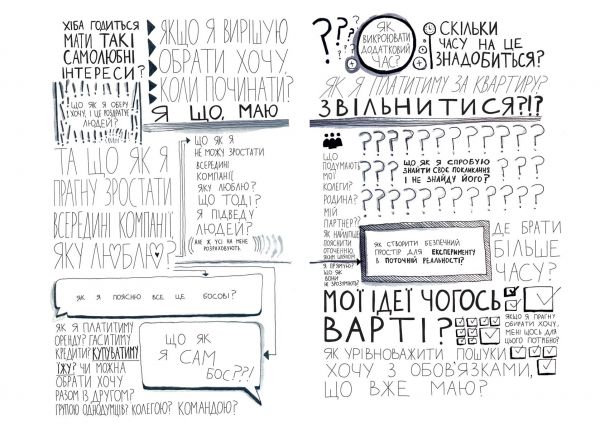 ХІБА ГОДИТЬСЯ
МАТИ ТАКІ
САМОЛЮБНІ
ІНТЕРЕСИ?
ЯКЩО Я ВИРІШУЮ
ОБРАТИ ХОЧУ,
КОЛИ ПОЧИНАТИ?
ЩО ЯК Я ОБЕРУ
ХОЧУ, І ЦЕ РОЗДРАТУЄ
ЛЮДЕЙ?
Я ЩО, МАЮ
ТА ЩО ЯК Я
ПРАГНУ ЗРОСТАТИ
ВСЕРЕДИНІ КОМПАНІЇ,
ЯКУ ЛЮБЛЮ?
ЩО ЯК Я
НЕ МОЖУ ЗРОСТАТИ
ВСЕРЕДИНІ
КОМПАНІЇ
ЯКУ ЛЮБЛЮ?
ЩО ТОДІ?
Я ПІДВЕДУ
ЛЮДЕЙ?
(АЛЕ Ж УСІ НА МЕНЕ
РОЗРАХОВУЮТЬ)
ЯК Я ПОЯСНЮ ВСЕ ЦЕ БОСОВІ?
ЯК Я ПЛАТИТИМУ
ОРЕНДУ? ГАСИТИМУ
КРЕДИТИ? КУПУВАТИМУ
ЇЖУ? ЧИ МОЖНА
ОБРАТИ ХОЧУ
РАЗОМ ІЗ ДРУГОМ?
ГРУПОЮ ОДНОДУМЦІВ? КОЛЕГОЮ? КОМАНДОЮ?
ЩО ЯК
Я САМ
БОС??!
???
ЯК
ВИКРОЮВАТИ
ДОДАТКОВИЙ
ЧАС?
СКІЛЬКИ
ЧАСУ НА ЦЕ
ЗНАДОБИТЬСЯ?
ЯК Я ПЛАТИТИМУ ЗА КВАРТИРУ?
ЗВІЛЬНИТИСЯ?!?
ЩО
ПОДУМАЮТЬ
МОЇ
КОЛЕГИ?
РОДИНА?
МІЙ
ПАРТНЕР??
ЯК НАЙЛІПШЕ
ПОЯСНИТИ
ОТОЧЕННЮ,
ЯКИМ ШЛЯХОМ
Я ПРЯМУЮ?
ЩО ЯК
ВОНИ
НЕ ЗРОЗУМІЮТЬ?
ЩО ЯК Я СПРОБУЮ
ЗНАЙТИ СВОЄ ПОКЛИКАННЯ
І НЕ ЗНАЙДУ ЙОГО?
ЯК СТВОРИТИ БЕЗПЕЧНИЙ
ПРОСТІР ДЛЯ ЕКСПЕРИМЕНТУ
В ПОТОЧНІЙ РЕАЛЬНОСТІ?
ДЕ БРАТИ
БІЛЬШЕ
ЧАСУ?
МОЇ ІДЕЇ ЧОГОСЬ
ВАРТІ?
ЯКЩО Я ПРАГНУ
ОБИРАТИ ХОЧУ,
МЕНІ ЩОСЬ ДЛЯ
ЦЬОГО ПОТРІБНО?
ЯК УРІВНОВАЖИТИ ПОШУКИ
ХОЧУ З ОБОВ'ЯЗКАМИ,
ЩО ВЖЕ МАЮ?